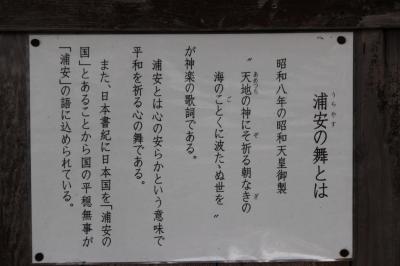 浦安の舞とは
うらやす
昭和八年の昭和天皇御製
〝天地の神にぞ祈る朝なぎの
あめつち
ぞ
ぎ
海のごとくに波たゝぬ世を〟
ご
が神楽の歌詞である。
浦安とは心の安らかという意味で
平和を祈る心の舞である。
また、日本書紀に日本国を「浦安の
国」とあることから国の平穏無事が
「浦安」の語に込められている。